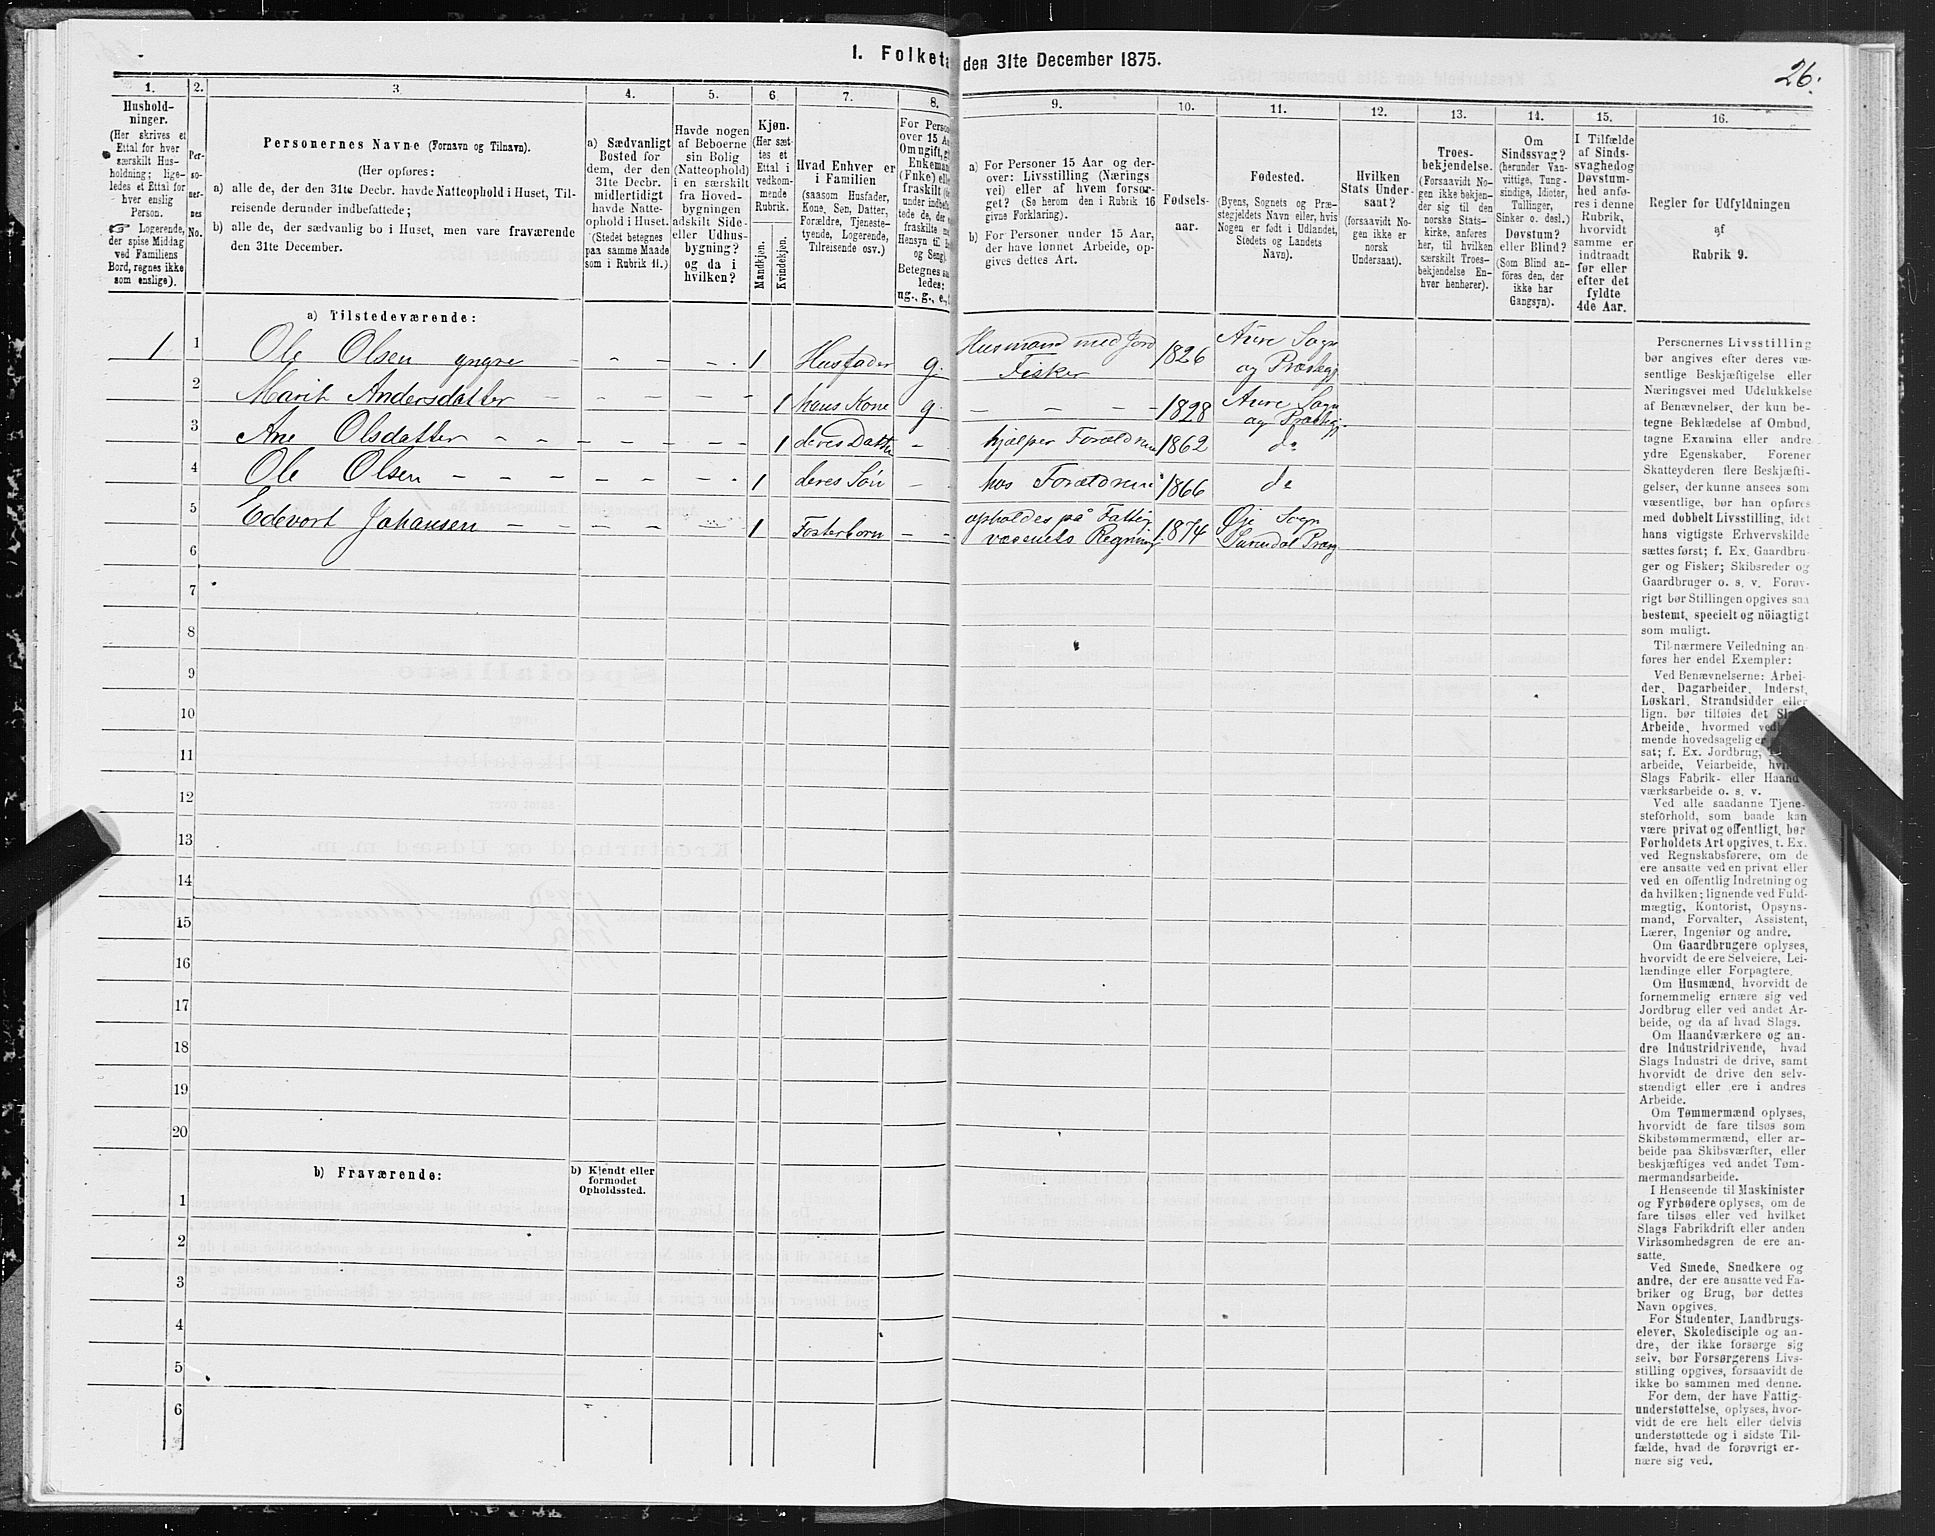 1. Folketæ den 31te December 1875.
26.
1.
Hushold-
ninger.
(Her skrives et
Ettal for hver
særskilt Hus-
holdning; lige-
ledes et Ettal for
hver enslig
Person.
☞ Logerende,
der spise Middag
ved Familiens
Bord, regnes ikke
som enslige).
2.
Per-
so-
ner-
nes
No.
3.
Personernes Navne (Fornavn og Tilnavn).
(Her opføres:
a) alle de, der den 31te Decbr. havde Natteophold i Huset, Til-
reisende derunder indbefattede;
b) alle de, der sædvanlig bo i Huset, men vare fraværende
den 31te December.
4.
a) Sædvanligt
Bosted for
dem, der den
31te Decbr.
midlertidigt
havde Natte-
ophold i Huset.
(Stedet betegnes
paa samme Maade
som i Rubrik 11.)
5.
Havde nogen
af Beboerne
sin Bolig
(Natteophold)
i en særskilt
fra Hoved-
bygningen
adskilt Side-
eller Udhus-
bygning?
og da i
hvilken?
6.
Kjøn.
(Her sæt-
tes et
Ettal i
vedkom-
mende
Rubrik.
Mandkjøn.
Kvindekjøn.
7.
Hvad Enhver er
i Familien
(saasom Husfader,
Kone, Søn, Datter,
Forældre, Tjeneste-
tyende, Logerende,
Tilreisende osv.)
8.
For Person
over 15 Aa
Om ugift, g
Enkeman
(Enke) elle
fraskilt (e
under indbefa
tede de, der
fraskilte me
Hensyn til B
og Seng).
Betegnes saa
ledes:
ug., g., e.,
9.
a) For Personer 15 Aar og der-
over: Livsstilling (Nærings
vei) eller af hvem forsør-
get? (Se herom den i Rubrik 16
givne Forklaring).
b) For Personer under 15 Aar,
der have lønnet Arbeide, op-
gives dettes Art.
10.
Fødsels-
aar.
11.
Fødested.
(Byens, Sognets og Præ-
stegjeldets Navn eller, hvis
Nogen er født i Udlandet,
Stedets og Landets
Navn).
12.
Hvilken
Stats Under-
saat?
(forsaavidt No-
gen ikke er
norsk
Undersaat).
13.
Troes-
bekjendelse.
(Forsaavidt No-
gen ikke bekjen-
der sig til den
norske Stats-
kirke, anføres
her, til hvilken
særskilt Troes-
bekjendelse En-
hver henhører).
14.
Om
Sindssvag?
(herunder Van-
vittige, Tung-
sindige, Idioter,
Tullinger,
Sinker o. desl.)
Døvstum?
eller Blind?
(Som Blind an-
føres den, der
ikke har
Gangsyn).
15.
I Tilfælde
af Sinds-
svaghed og
Døvstum-
hed anfø-
res i denne
Rubrik,
hvorvidt
samme er
indtraadt
før eller
efter det
fyldte
4de Aar.
16.
Regler for Udfyldningen
af
Rubrik 9.
a) Tilstedeværende:
1 1 Ole Olsen yngre - - - - 1 Husfader g. Husmand med Jord Fisker 1826 Aure Sogn og Præstegj
2 Marit Andersdatter - - - - 1 hans Kone g. - - - 1828 Aure Sogn og Præstegj.
3 Ane Olsdatter - - - - - - 1 deres Datter - hjælper Forældrene 1862 do
4 Ole Olsen - - - - - - 1 deres Søn - hos Forældrene 1866 do
5 Edevort Johansen - - - - 1 Fosterbarn - - opholdes på Fattig væsenets Regning 1874 Øie Sogn Surendal Præstg
6
7
8
9
10
11
12
13
14
15
16
17
18
19
20
b) Fraværende:
b) Kjendt eller
formodet
Opholdssted.
1
2
3
4
5
6
Personernes Livsstilling
bør angives efter deres væ-
sentlige Beskjæftigelse eller
Næringsvei med Udelukkelse
af Benævnelser, der kun be-
tegne Beklædelse af Ombud,
tagne Examina eller andre
ydre Egenskaber. Forener
Skatteyderen flere Beskjæfti-
gelser, der kunne ansees som
væsentlige, bør han opføres
med dobbelt Livsstilling, idet
hans vigtigste Erhvervskilde
sættes først; f. Ex. Gaardbru-
ger og Fisker; Skibsreder og
Gaardbruger o. s. v. Forøv-
rigt bør Stillingen opgives saa
bestemt, specielt og nöiagtigt
som muligt.
Til nærmere Veiledning an-
føres her endel Exempler:
Ved Benævnelserne: Arbei-
der, Dagarbeider, Inderst,
Løskarl, Strandsidder eller
lign. bør tilføies det Slags
Arbeide, hvormed vedkom-
mende hovedsagelig er
sat; f. Ex. Jordbrug,
arbeide, Veiarbeide, hvilket
Slags Fabrik- eller Haand-
værksarbeide o. s. v.
Ved alle saadanne Tjene-
steforhold, som baade kan
være privat og offentligt, bør
Forholdets Art opgives, f. Ex.
ved Regnskabsførere, om de
ere ansatte ved en privat eller
ved en offentlig Indretning og
da hvilken; lignende ved Fuld-
mægtig, Kontorist, Opsyns-
mand, Forvalter, Assistent,
Lærer, Ingeniør og andre.
Om Gaardbrugere oplyses,
hvorvidt de ere Selveiere, Lei-
lændinge eller Forpagtere.
Om Husmænd, hvorvidt de
fornemmelig ernære sig ved
Jordbrug eller ved andet Ar-
beide, og da af hvad Slags.
Om Haandværkere og an-
dre Industridrivende, hvad
Slags Industri de drive, samt
hvorvidt de drive den selv-
stændigt eller ere i andres
Arbeide.
Om Tømmermænd oplyses,
hvorvidt de fare tilsøs som
Skibstømmermænd, eller ar-
beide paa Skibsværfter, eller
beskjæftiges ved andet Tøm-
mermandsarbeide.
I Henseende til Maskinister
og Fyrbødere oplyses, om de
fare tilsøs eller ved hvilket
Slags Fabrikdrift eller anden
Virksomhedsgren de ere an-
satte.
Ved Smede, Snedkere og
andre, der ere ansatte ved Fa-
briker og Brug, bør dettes
Navn opgives.
For Studenter, Landbrugs-
elever, Skoledisciple og an-
dre, der ikke forsørge sig
selv, bør Forsørgerens Livs-
stilling opgives, forsaavidt de
ikke bo sammen med denne.
For dem, der have Fattig-
understøttelse, oplyses, hvor-
vidt de ere helt eller delvis
understøttede og i sidste Til-
fælde, hvad de forøvrigt er-
nære sig ved.